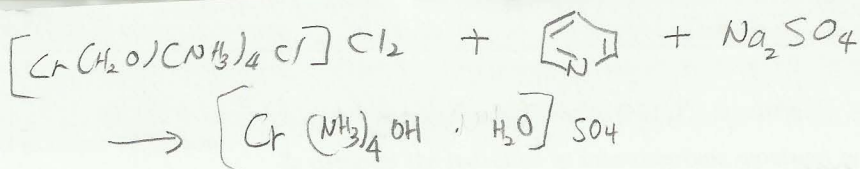 [Cr(H₂O)(NH₃)₄Cl]Cl₂ + N + Na₂SO₄
→ [Cr(NH₃)₄OH · H₂O]SO₄